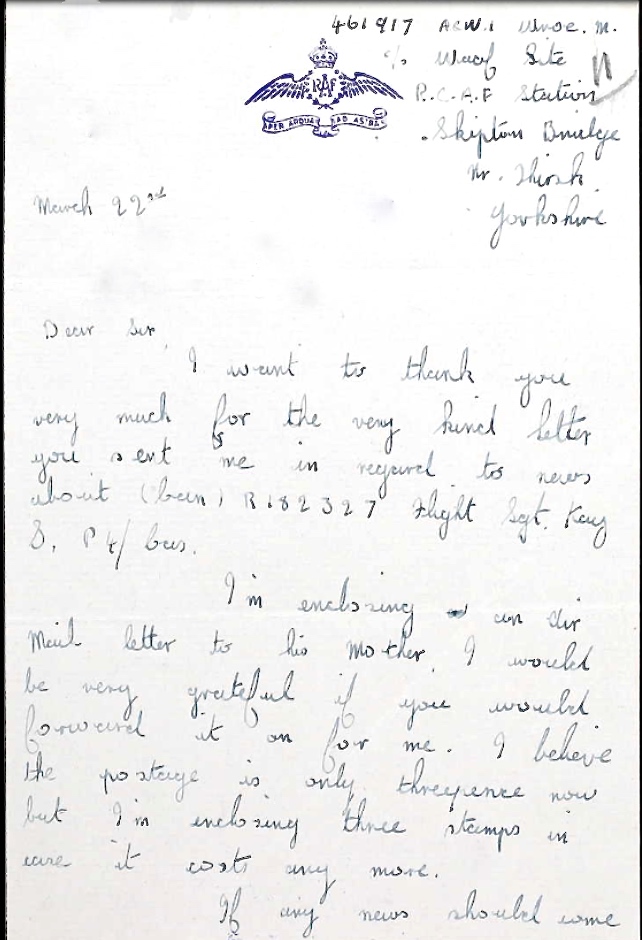 461917 ACW.1 Wroe. M.
c/o Waaf Site
R.C.A.F Station
Skipton Bridge
Nr. Thirsk.
Yorkshire
RAF
PER ARDUA AD ASTRA
March 22nd
Dear Sir,
I want to thank you
very much for the very kind letter
you sent me in regard to news
about (Can) R182327 Flight Sgt. Kay
S.
I'm enclosing an air
Mail letter to his Mother, I would
be very grateful if you would
forward it on for me. I believe
the postage is only threepence now
but I'm enclosing three stamps in
case it costs any more.
If any news should come